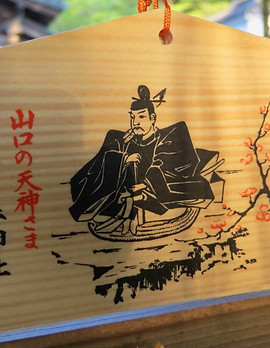 山口の天神さま